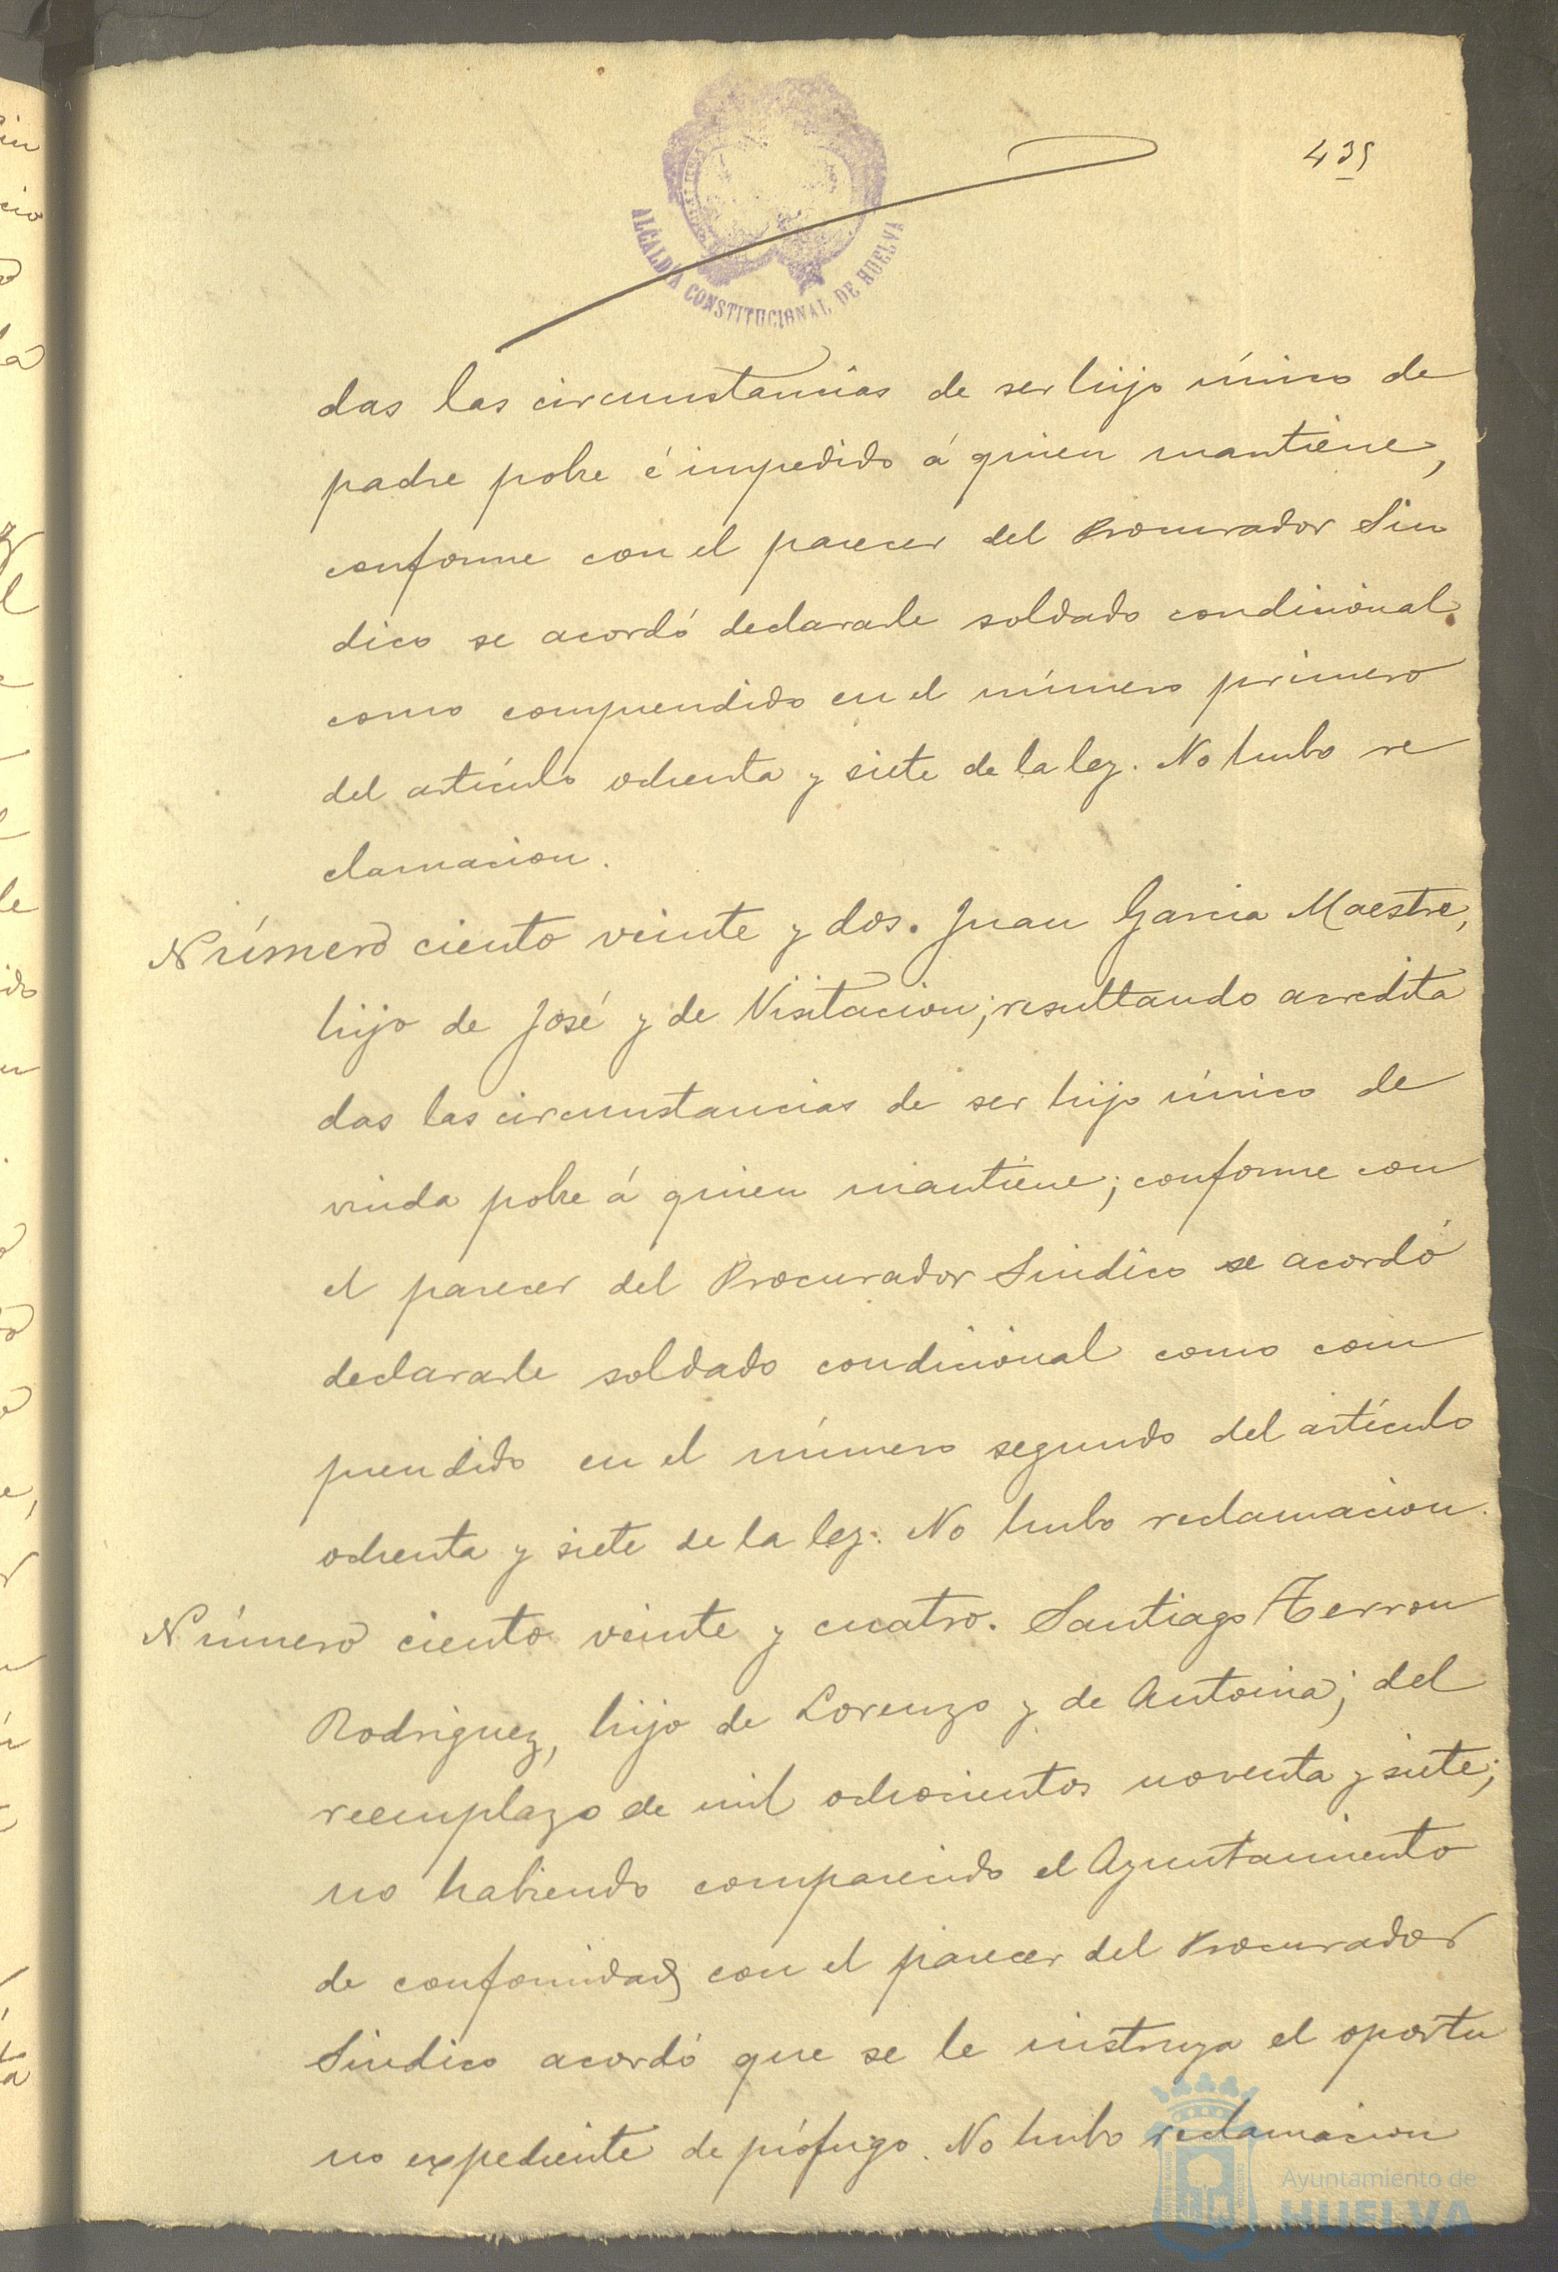 435
ALCALDÍA CONSTITUCIONAL DE HUELVA
das las circunstancias de ser hijo único de
padre pobre é impedido á quien mantiene,
conforme con el parecer del Procurador Sin
dico se acordó declararle soldado condicional
como comprendido en el número primero
del artículo ochenta y siete de la ley. No hubo re
clamacion.
Número ciento veinte y dos. Juan Garcia Maestre,
hijo de José y de Visitacion; resultando acredita
das las circunstancias de ser hijo único de
viuda pobre á quien mantiene; conforme con
el parecer del Procurador Sindico se acordó
declararle soldado condicional como com
prendido en el número segundo del artículo
ochenta y siete de la ley. No hubo reclamacion.
Número ciento veinte y cuatro. Santiago Terron
Rodriguez, hijo de Lorenzo y de Antonia; del
reemplazo de mil ochocientos noventa y siete;
no habiendo comparecido el Ayuntamiento
de conformidad con el parecer del Procurador
Sindico acordó que se le instruya el oportu
no expediente de prófugo. No hubo reclamacion
Ayuntamiento de
HUELVA